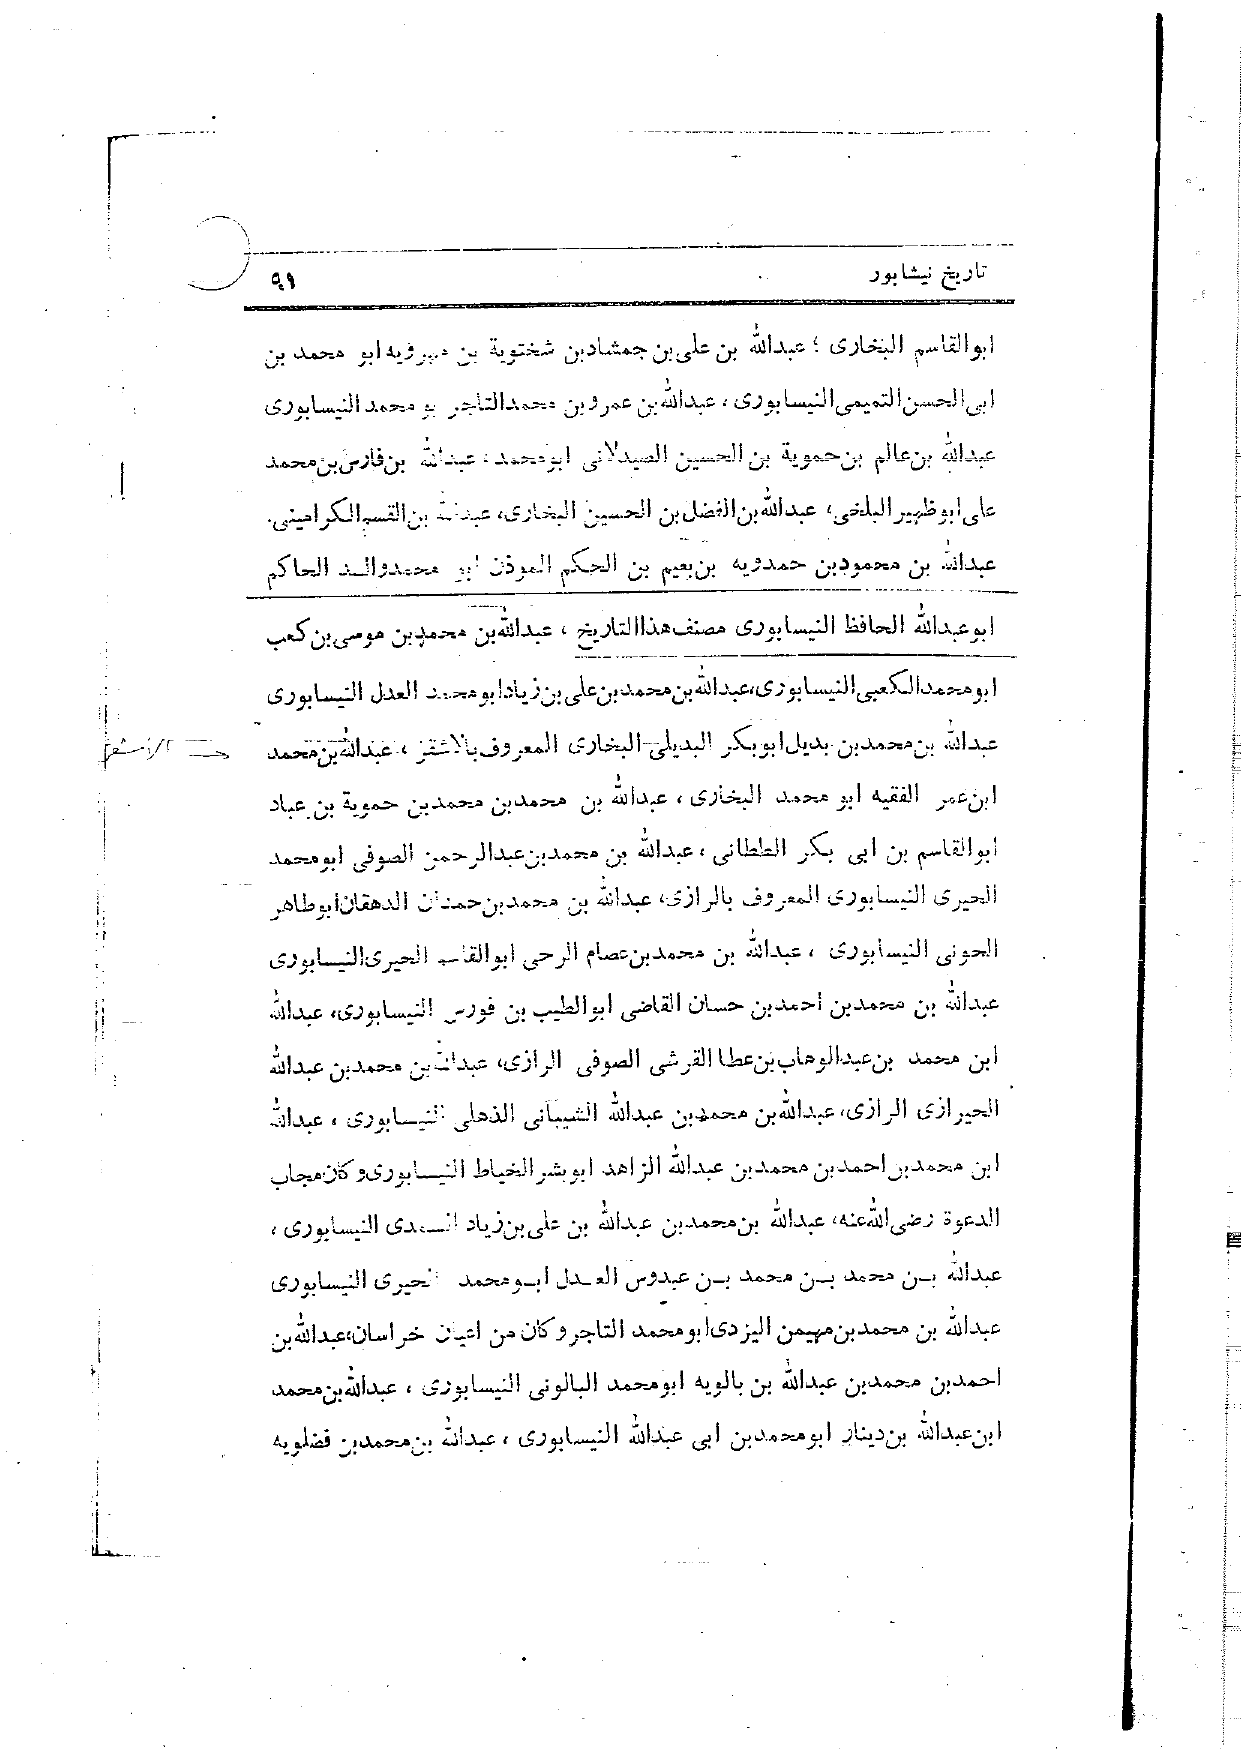 تاریخ نیشابور
۹۹
ابوالقاسم البخاری ؛ عبدالله بن علی بن جمشادبن شختویة بن ابو محمد بن
ابی الحسن التمیمی النیسابوری ، عبدالله بن عمروبن محمدالتاجر بو محمد النیسابوری
عبدالله بن عالم بن حمویة بن الحسین الصیدلانی ابومحمد ، عبدالله بن فارس بن محمد
علی ابوظهیر البلخی، عبدالله بن الفضل بن الحسین البخاری، عبدالله بن القسم
عبدالله بن محمودبن حمدویه بن نعیم بن الحکم الموذن ابو محمدوالد الحاکم
ابوعبدالله الحافظ النیسابوری مصنف هذاالتاریخ ، عبدالله بن محمدبن موسی بن کعب
ابومحمدالکعبی النیسابوری،عبدالله بن محمدبن علی بن زیادابومحمد العدل النیسابوری
عبدالله بن محمدبن بدیل ابوبکر البدیلی البخاری المعروف بالاشقر ، عبدالله بن محمد
ابن عمر الفقیه ابو محمد البخاری ، عبدالله بن محمدبن محمدبن حمویة بن عباد
ابوالقاسم بن ابی بکر الططانی ، عبدالله بن محمدبن عبدالرحمن الصوفی ابومحمد
الحیری النیسابوری المعروف بالرازی، عبدالله بن محمدبن حمدان الدهقان ابوطاهر
الجونی النیسابوری ، عبدالله بن محمدبن عصام الرحی ابوالقاسم الحیری النیسابوری
عبدالله بن محمدبن احمدبن حسان القاضی ابوالطیب بن فورس النیسابوری، عبدالله
ابن محمد بن عبدالوهاب بن عطا القرشی الصوفی الرازی، عبدالله بن محمدبن عبدالله
الحیرازی الرازی، عبدالله بن محمدبن عبدالله الشیبانی الذهلی النیسابوری ، عبدالله
ابن محمدبن احمدبن محمدبن عبدالله الزاهد ابوبشر الخیاط النیسابوری وکان مجاب
الدعوة رضی الله عنه، عبدالله بن محمدبن عبدالله بن علی بن زیاد النیسابوری ،
عبدالله بن محمد بن محمد بن عبدوس العدل ابومحمد الحیری النیسابوری
عبدالله بن محمدبن مهیمن الیزدی ابومحمد التاجر وکان من اعیان خراسان،عبدالله بن
احمدبن محمدبن عبدالله بن بالویه ابومحمد البالونی النیسابوری ، عبدالله بن محمد
ابن عبدالله بن دینار ابومحمدبن ابی عبدالله النیسابوری ، عبدالله بن محمدبن فضلویه